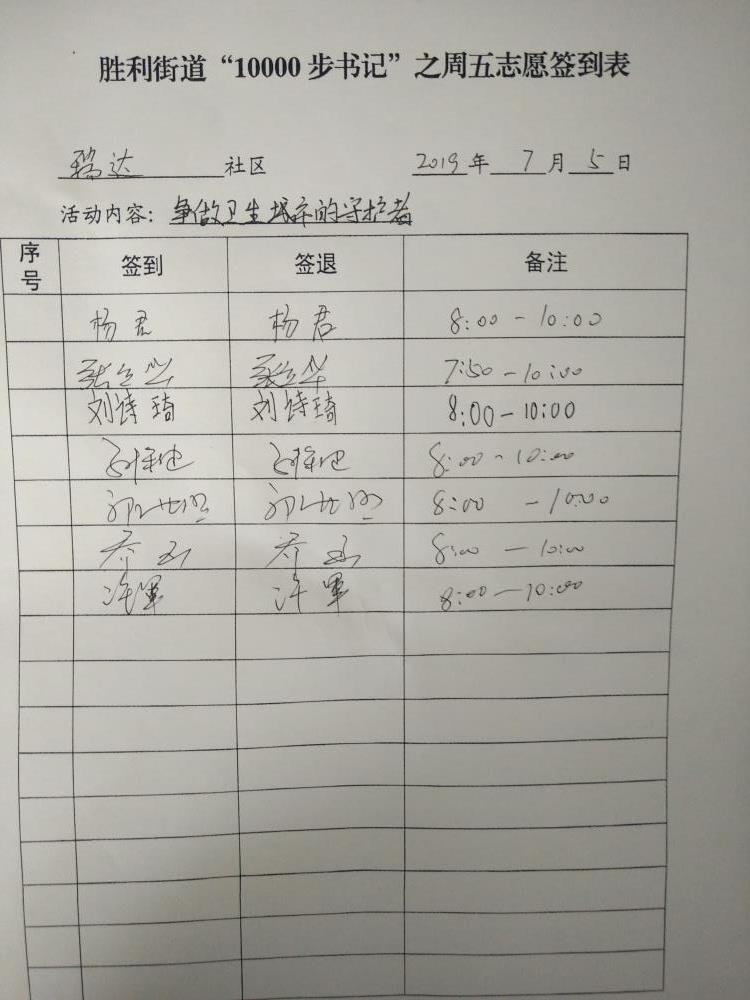 胜利街道“10000步书记”之周五志愿签到表
瑞达社区 2019年7月5日
活动内容：争做卫生城市的守护者
序号 签到 签退 备注
杨君 杨君 8:00-10:00
7:50-10:00
刘诗琦 刘诗琦 8:00-10:00
8:00-10:00
8:00-10:00
8:00-10:00
许军 许军 8:00-10:00